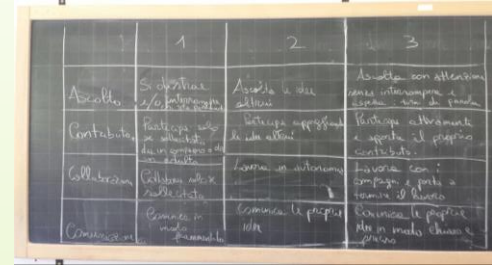 1 2 3
Ascolto
Si distrae
e/o interrompe
Ascolta le idee
altrui
Ascolta con attenzione
senza interrompere e
aspetta turno di parola
Contributo
Partecipa solo
se sollecitato
da un compagno o da
un adulto
Partecipa
le idee altrui
Partecipa attivamente
e apporta il proprio
contributo.
Collabora solo se
sollecitato
Lavora in autonomia
Lavora con i
compagni e porta a
termine il lavoro
Comunica in
modo
frammentato
Comunica le proprie
idee
Comunica le proprie
idee in modo chiaro e
preciso